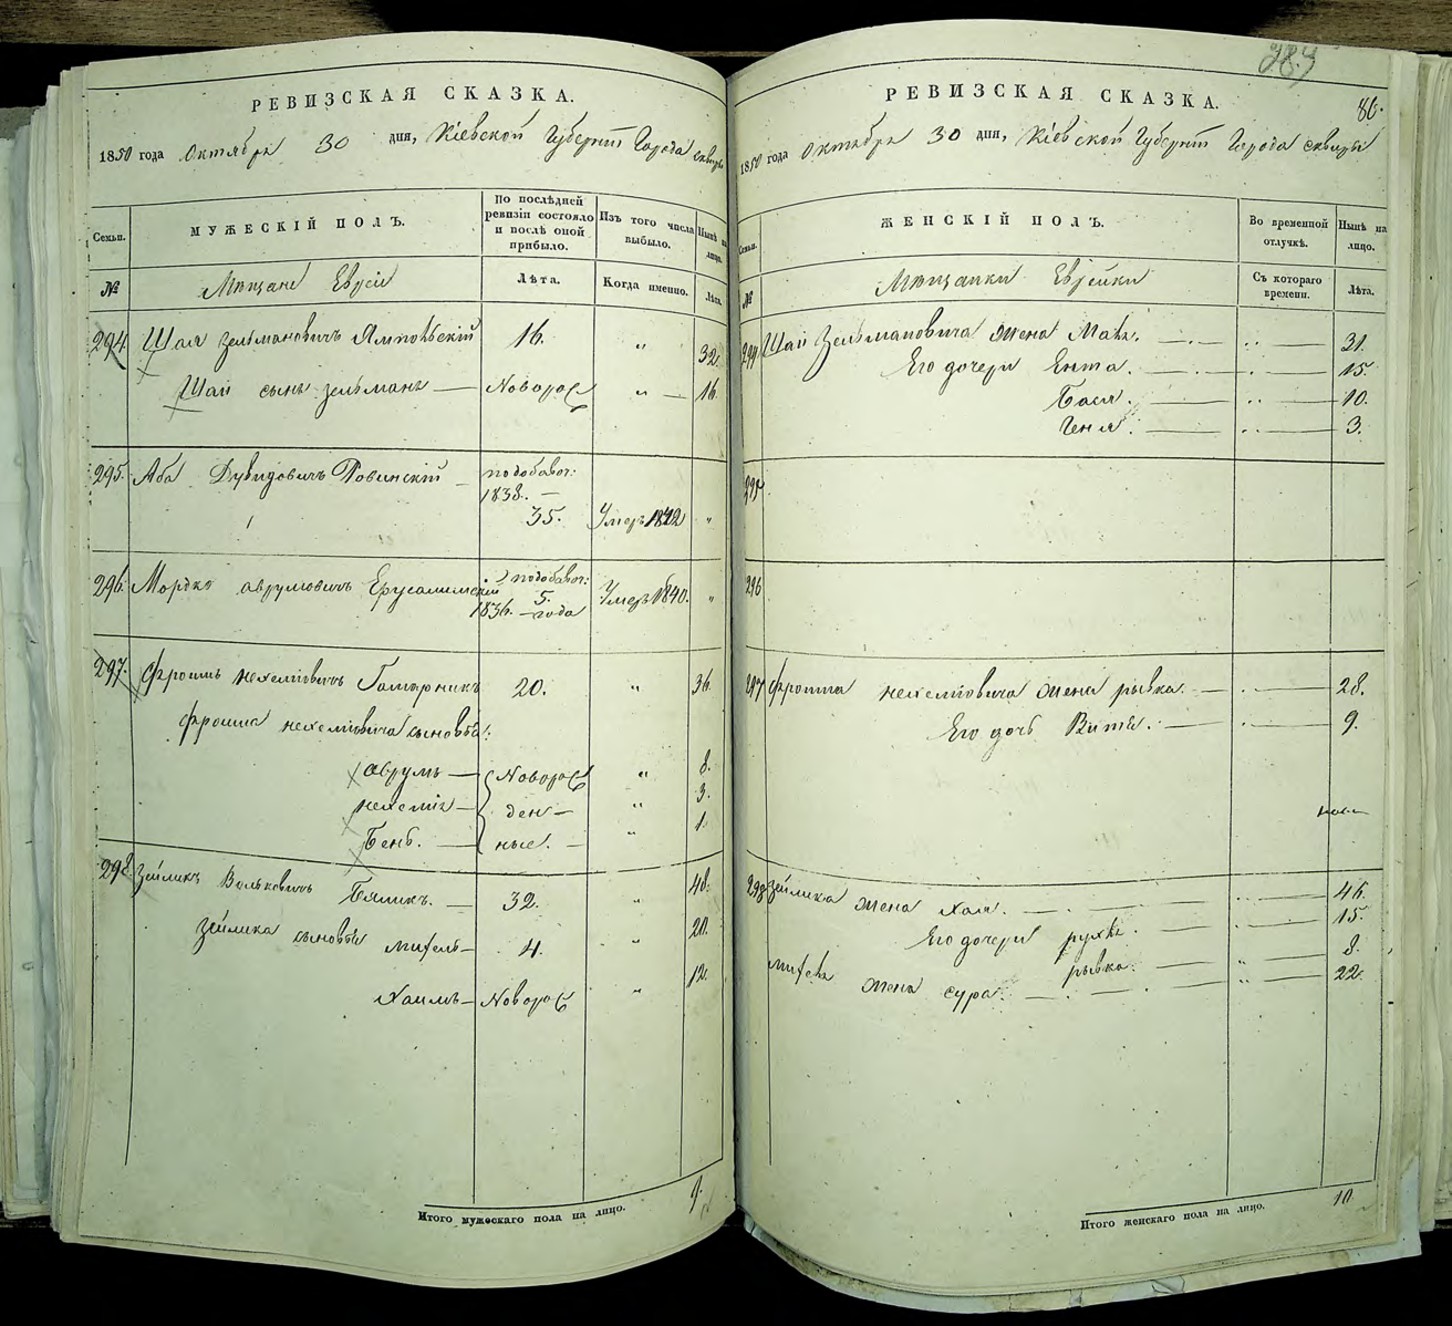 РЕВИЗСКАЯ СКАЗКА.
1850 года Октября 30 дня, Кіевской Губерніи Города Сквиры
Семьи. МУЖЕСКІЙ ПОЛЪ. По послѣдней ревизіи состояло и послѣ оной прибыло. Изъ того числа выбыло. Нынѣ на лицо.
№ Мѣщане Евреи Лѣта. Когда именно. Лѣта.
294 Шая Зельмановичъ Ямпольскій 16. " 32.
Шаи сынъ Зельманъ — Новорос " — 16.
295. Аба Дувидовичъ Ровинскій — подобавоч: 1838. — 35. Умеръ 1842 "
296. Мордко Аврумовичъ Ерусалимскій подобавоч: 1836. 5. года Умеръ 1840. "
297. Фроимъ Нехеміовичъ Гамарникъ 20. " 36
Фроима Нехеміовича сыновья:
Аврумъ — Новорож " 8.
Нехемія — ден — " 3.
Бенб. — ные. — " 1
298 Зейликъ Вольковичъ Бяликъ. — 32. " 48.
Зейлика сыновья — 4. " 20.
Хаимъ — Новорос " 12.
Итого мужескаго пола на лицо. 9.
283
86.
РЕВИЗСКАЯ СКАЗКА.
1850 года Октября 30 дня, Кіевской Губерніи Города Сквиры
Семьи. ЖЕНСКІЙ ПОЛЪ. Во временной отлучкѣ. Нынѣ на лицо.
№ Мѣщанки Еврейки Съ котораго времени. Лѣта.
294 Шаи Зельмановича жена — 31.
Его дочери Ента. — 15.
Бася. — 10.
Геня. — 3.
295
296
297 Фроима Нехеміовича жена Рывка. — 28.
Его дочь Витя. — 9.
298 Зейлика жена Хая. — 46.
Его дочери Рухля. — 15.
Рывка. — 8.
жена Сура. — 22.
Итого женскаго пола на лицо. 10